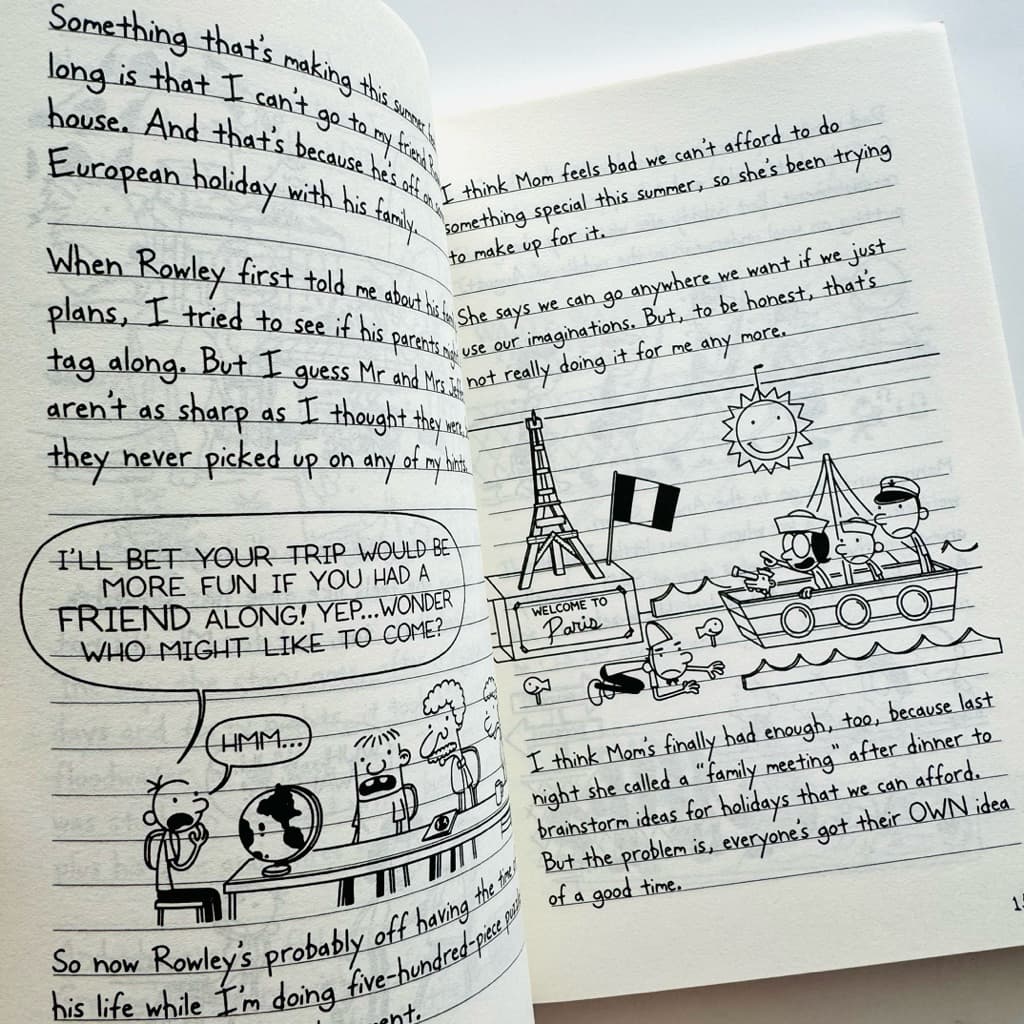 Something that's making this summer
long is that I can't go to my friend
house. And that's because he's off on
European holiday with his family.
When Rowley first told me about his
plans, I tried to see if his parents
tag along. But I guess Mr and Mrs
aren't as sharp as I thought they were
they never picked up on any of my hints
I'LL BET YOUR TRIP WOULD BE
MORE FUN IF YOU HAD A
FRIEND ALONG! YEP...WONDER
WHO MIGHT LIKE TO COME?
HMM...
So now Rowley's probably off having the time
his life while I'm doing five-hundred-piece
I think Mom feels bad we can't afford to do
something special this summer, so she's been trying
to make up for it.
She says we can go anywhere we want if we just
use our imaginations. But, to be honest, that's
not really doing it for me any more.
WELCOME TO
Paris
I think Mom's finally had enough, too, because last
night she called a "family meeting" after dinner to
brainstorm ideas for holidays that we can afford.
But the problem is, everyone's got their OWN idea
of a good time.